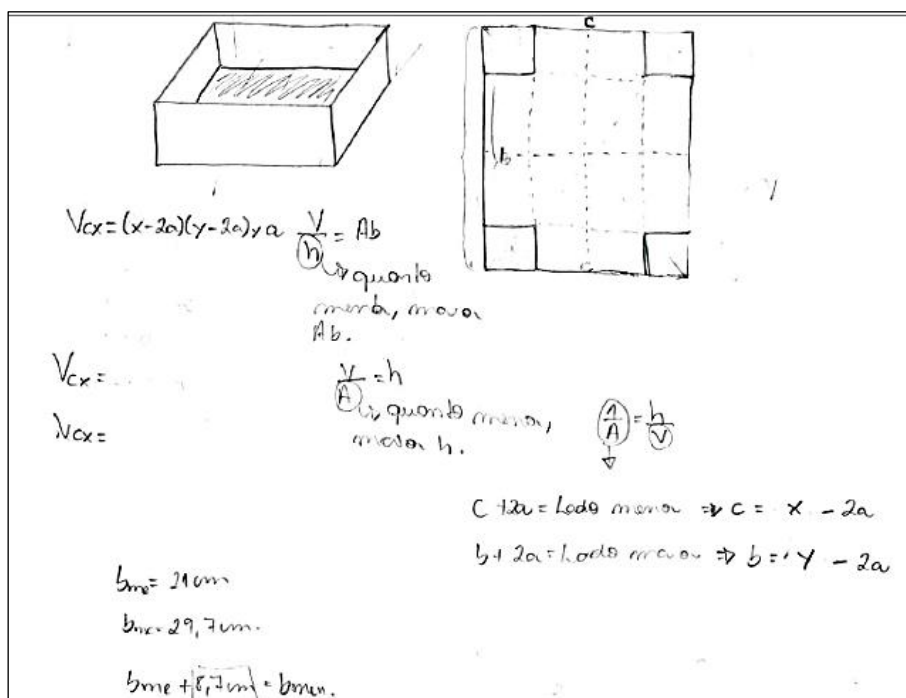 c
b
y
Vcx = (x-2a)(y-2a) x a
V/h = Ab
↳ quanto
menor, maior
Ab.
Vcx =
V/A = h
↳ quanto menor,
maior h.
1/A = h/V
Vcx =
C + 2a = Lado menor ⇒ c = x - 2a
b + 2a = Lado maior ⇒ b = y - 2a
bme = 21 cm
bma = 29,7 cm.
bme + 8,7 cm =